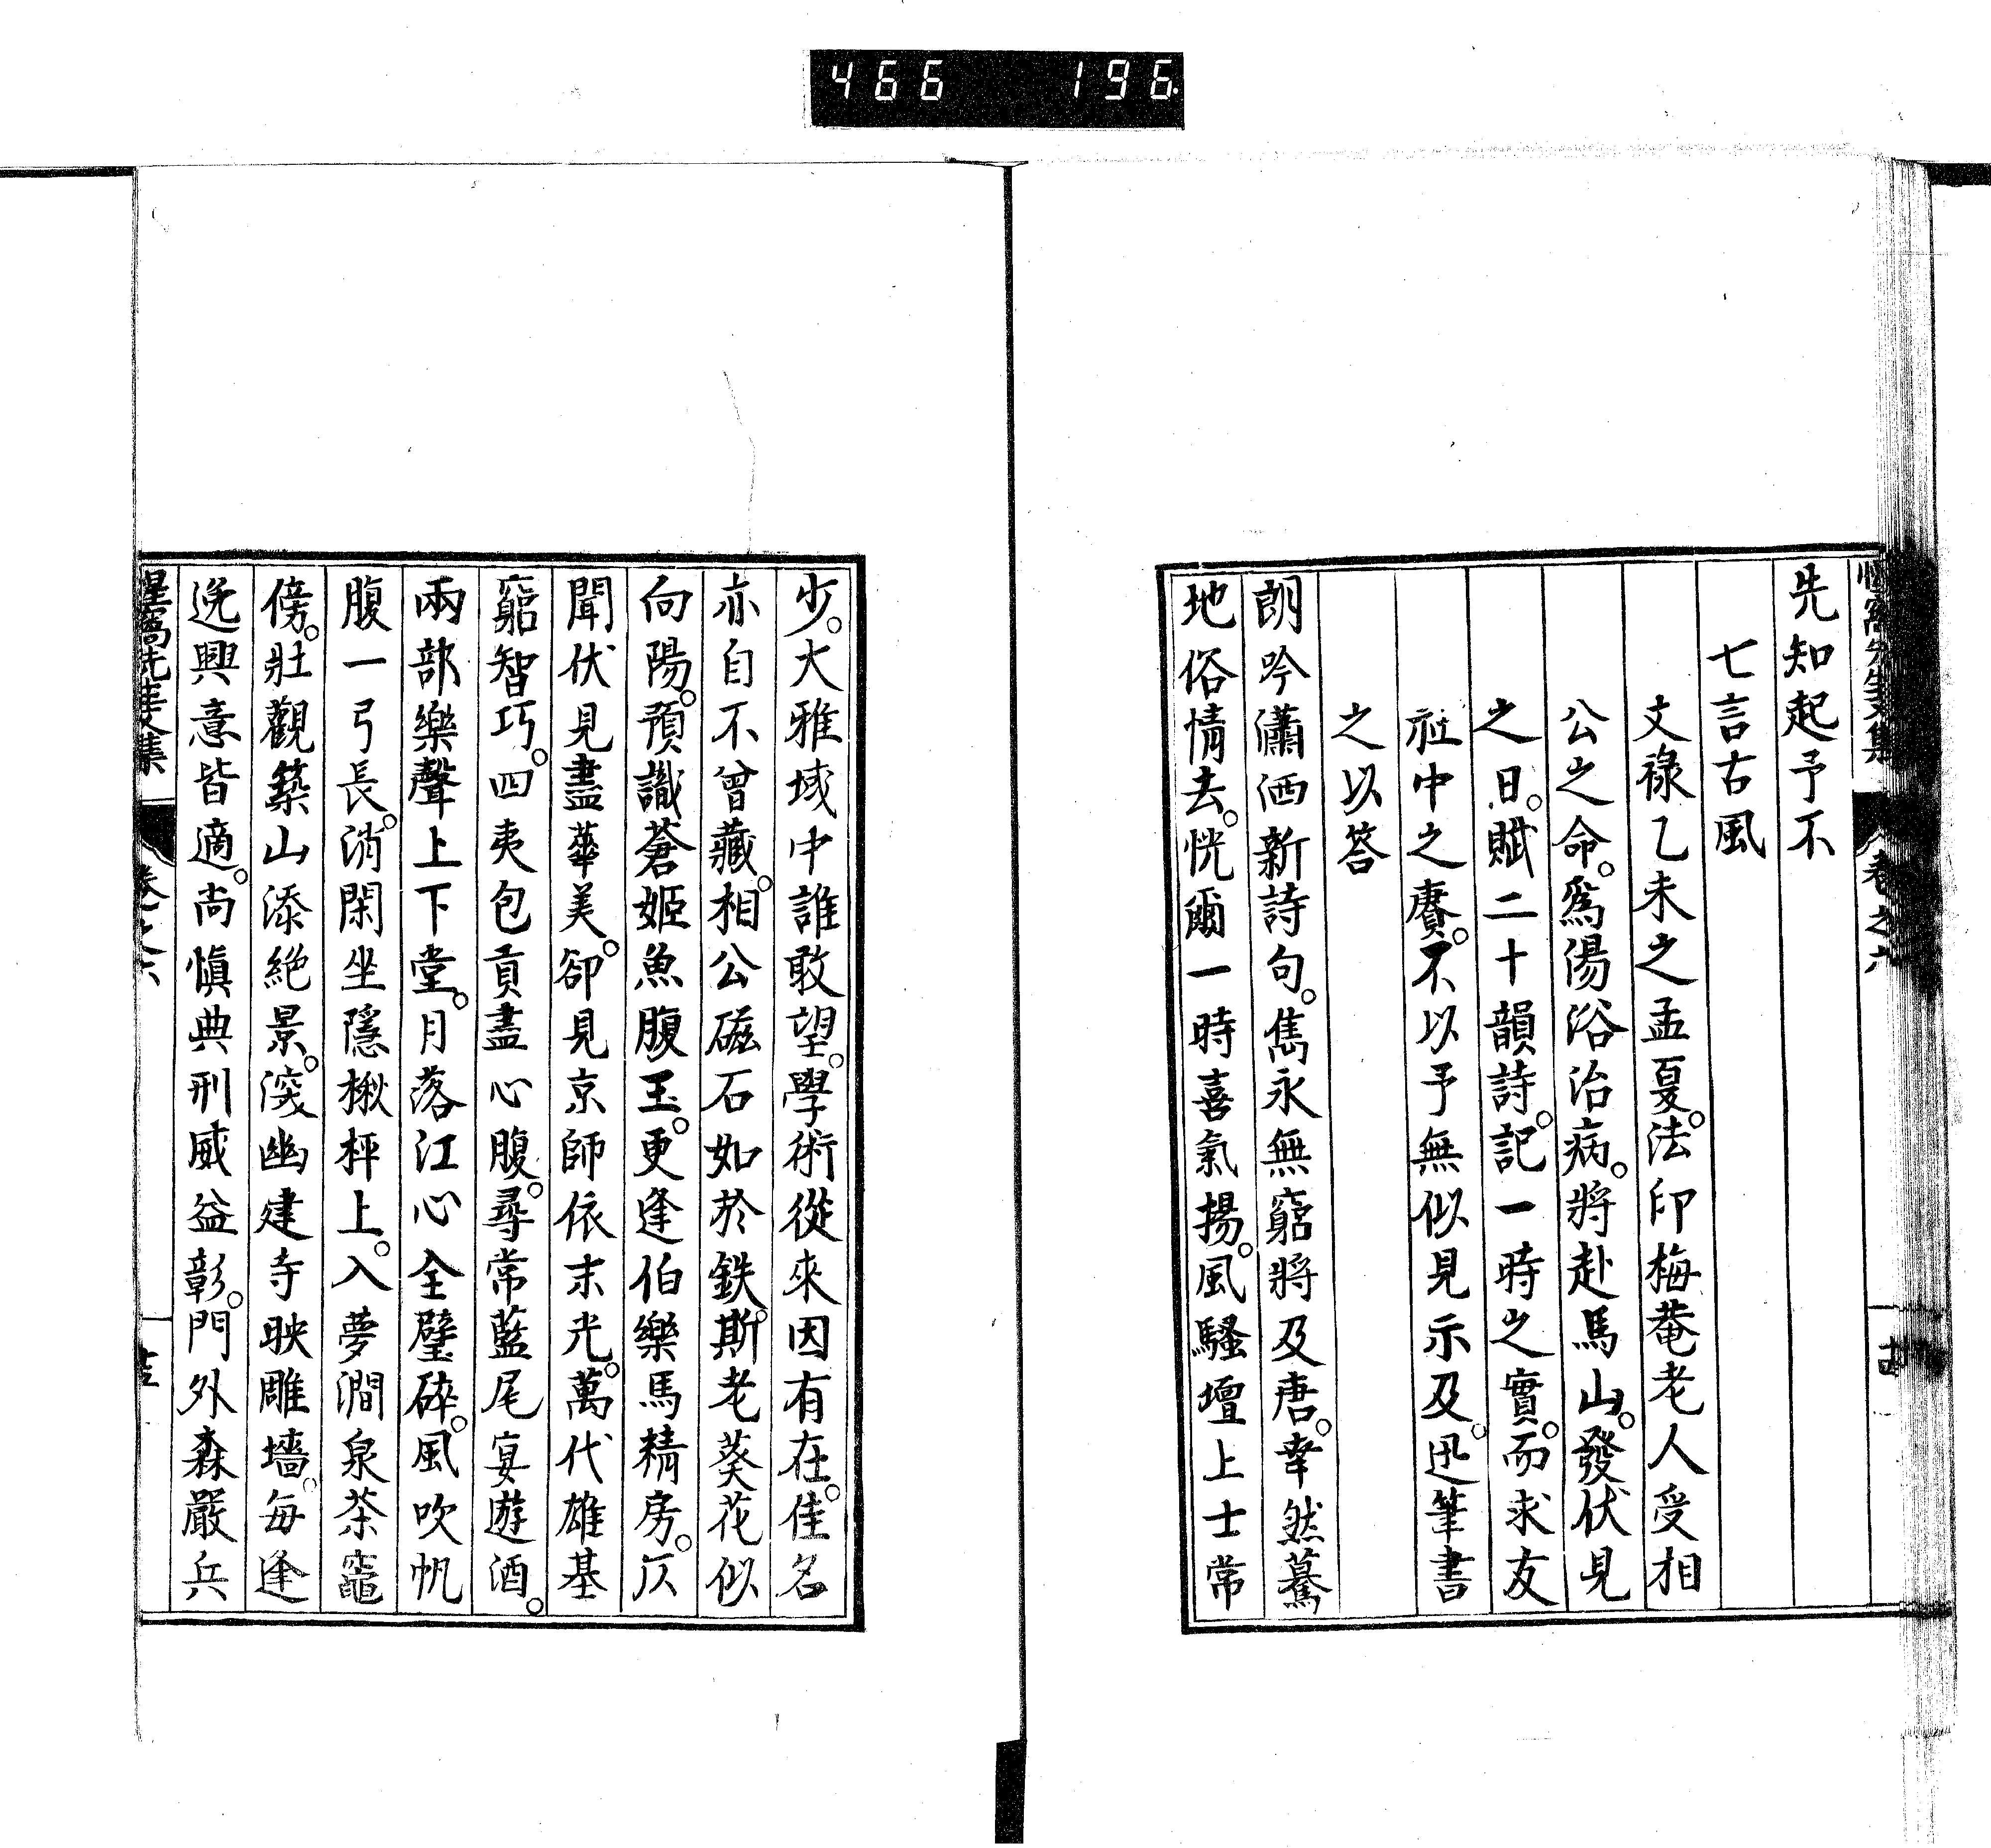 466 196
惺窩先生文集 卷之六
先知起予不
七言古風
文祿乙未之孟夏。法印梅菴老人受相
公之命。爲湯浴治病。將赴馬山。發伏見
之日。賦二十韻詩。記一時之實。而求友
社中之賡。不以予無似見示及。迅筆書
之以答
朗吟瀟洒新詩句。雋永無窮將及唐。幸然驀
地俗情去。恍爾一時喜氣揚。風騷壇上士常
少。大雅域中誰敢望。學術從來因有在。佳名
亦自不曾藏。相公磁石如於鉄。斯老葵花似
向陽。預識蒼姬魚腹玉。更逢伯樂馬精房。仄
聞伏見盡華美。卻見京師依末光。萬代雄基
窮智巧。四夷包貢盡心腹。尋常藍尾宴遊酒。
兩部樂聲上下堂。月落江心全璧碎。風吹帆
腹一弓長。消閑坐隱楸枰上。入夢澗泉茶竈
傍。壯觀築山添絶景。深幽建寺映雕墻。每逢
逸興意皆適。尚愼典刑威益彰。門外森嚴兵
惺窩先生文集 卷之六